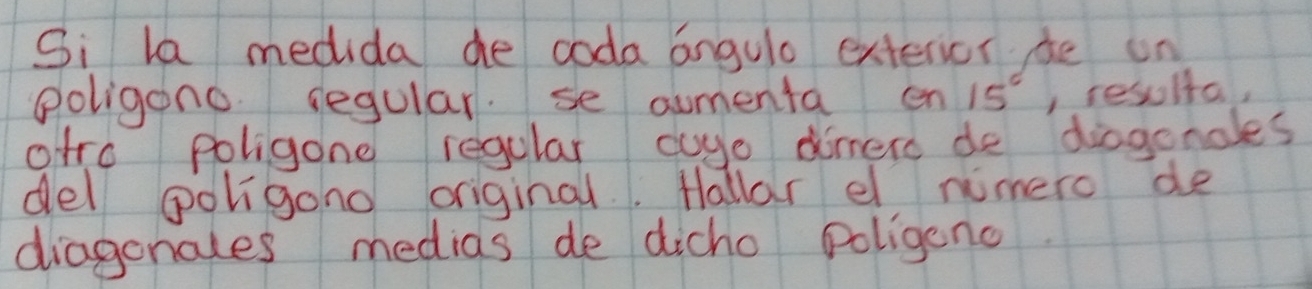 Si la medida de cada ángulo exterior de un
poligono regular. se aumenta en 15°, resulta,
otro poligono regular cuyo dúmero de diagonales
del polígono original. Hallar el número de
diagonales medias de dicho poligono.